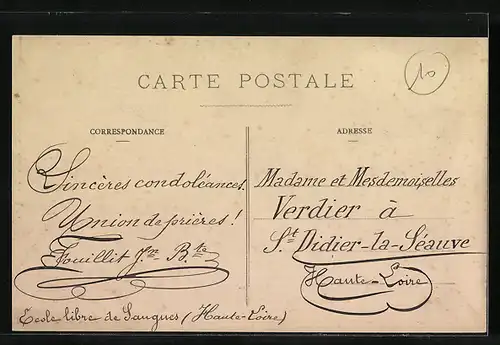 CARTE POSTALE
10
CORRESPONDANCE
Sincères condoléances.
Union de prières !
Fouillit Jn. Bte
Ecole libre de Saugues (Haute-Loire)
ADRESSE
Madame et Mesdemoiselles
Verdier à
St. Didier-la-Séauve
Haute-Loire